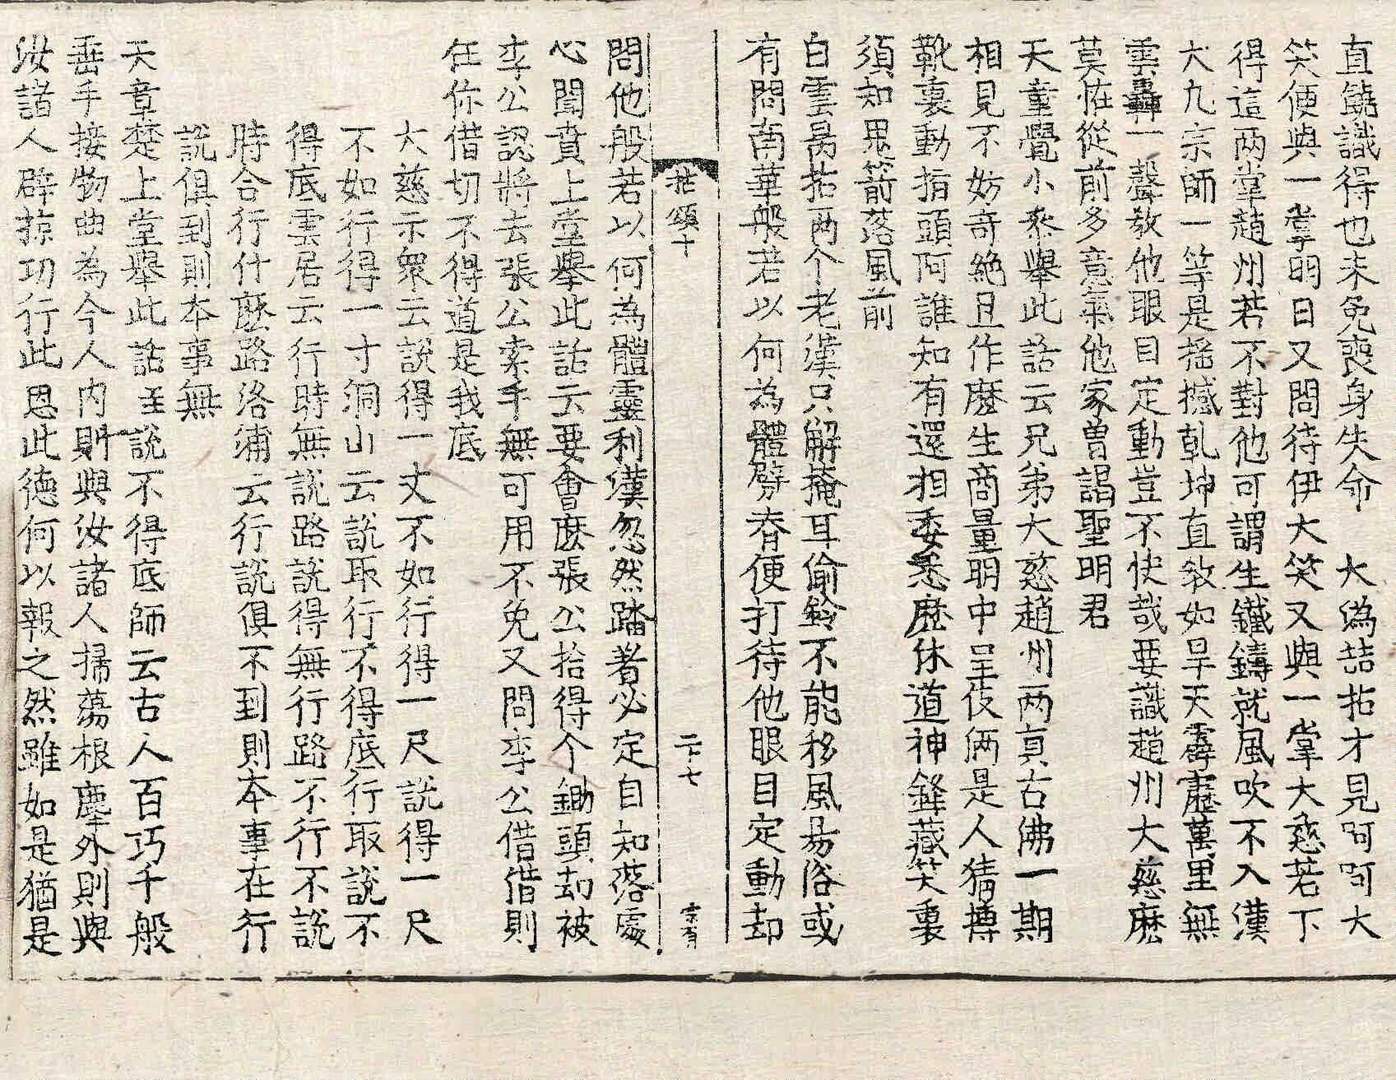 直饒識得也未免喪身失命　大溈喆拈才見呵呵大
笑便與一掌明日又問待伊大笑又與一掌大慈若下
得這两掌趙州若不對他可謂生鐵鑄就風吹不入漢
大凢宗師一等是摇撼乹坤直教如旱天霹靂萬里無
雲轟一聲教他眼目定動豈不快㢤要識趙州大慈麽
莫恠從前多意氣他家曽謁聖明君
天童覺小叅舉此話云兄弟大慈趙州两眞古佛一期
相見不妨奇絶且作麽生商量明中呈伎倆是人猜摶
靴裏動指頭阿誰知有還相委悉麽休道神鋒藏笑裏
須知毒箭落風前
白雲昺拈两个老漢只解掩耳偷鈴不能移風易俗或
有問南華般若以何為體劈脊便打待他眼目定動却
拈頌十　二十七　宗有
問他般若以何為體靈利漢忽然踏着必定自知落處
心聞賁上堂舉此話云要會麽張公拾得个鋤頭却被
李公認將去張公索手無可用不免又問李公借借則
任你借切不得道是我底
大慈示衆云說得一丈不如行得一尺說得一尺
不如行得一寸洞山云說取行不得底行取說不
得底雲居云行時無說路說得無行路不行不說
時合行什麽路洛浦云行說俱不到則本事在行
說俱到則本事無
天章楚上堂舉此話至說不得底師云古人百巧千般
垂手接物曲為今人内則與汝諸人掃蕩根塵外則與
汝諸人辟掠功行此恩此德何以報之然雖如是猶是